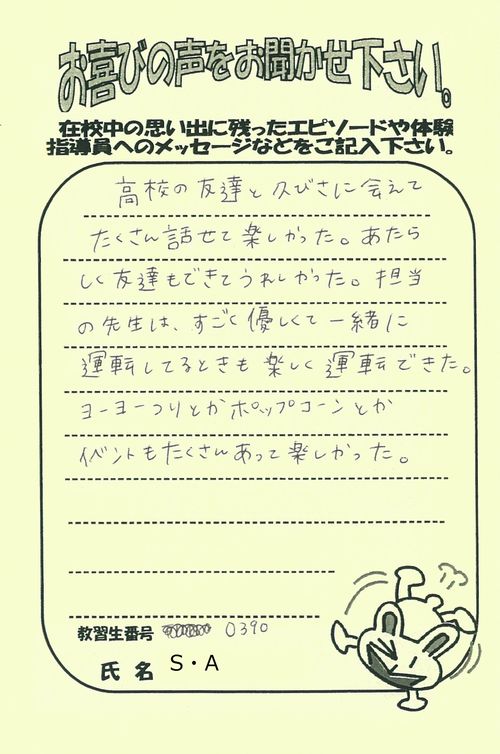 お喜びの声をお聞かせ下さい。
在校中の思い出に残ったエピソードや体験
指導員へのメッセージなどをご記入下さい。
高校の友達と久びさに会えて
たくさん話せて楽しかった。あたら
しく友達もできてうれしかった。担当
の先生は、すごく優しくて一緒に
運転してるときも楽しく運転できた。
ヨーヨーつりとかポップコーンとか
イベントもたくさんあって楽しかった。
教習生番号 0390
氏名 S・A